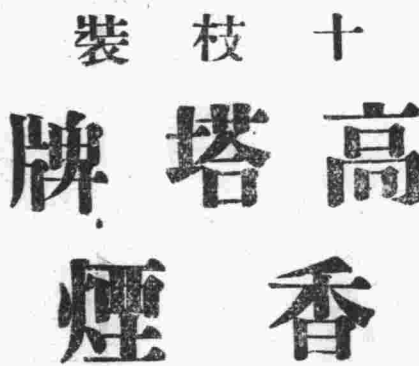 十枝裝
高塔牌
香煙